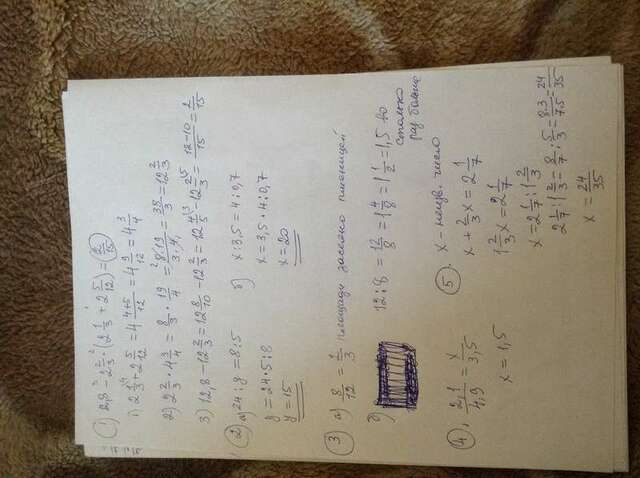 1) 2,8 - 2 2/3 · (2 1/3 + 2 5/12) = 2/15
1) 2 1/3 + 2 5/12 = 4 4+5/12 = 4 9/12 = 4 3/4
2) 2 2/3 · 4 3/4 = 8/3 · 19/4 = 8·19/3·4 = 38/3 = 12 2/3
3) 12,8 - 12 2/3 = 12 8/10 - 12 2/3 = 12 4/5 - 12 2/3 = 12-10/15 = 2/15
2 а) 24 : y = 8 : 5
y = 24 · 5 : 8
y = 15
б) x : 3,5 = 4 : 0,7
x = 3,5 · 4 : 0,7
x = 20
3 а) 8/12 = 2/3 площади засеяно пшеницей
б) 12 : 8 = 12/8 = 1 4/8 = 1 1/2 = 1,5 во
столько
раз больше
4. 2,1/4,9 = x/3,5
x = 1,5
5. x - неизв. число
x + 2/3 x = 2 1/7
1 2/3 x = 2 1/7
x = 2 1/7 : 1 2/3
2 1/7 : 1 2/3 = 8/7 : 5/3 = 8·3/7·5 = 24/35
x = 24/35